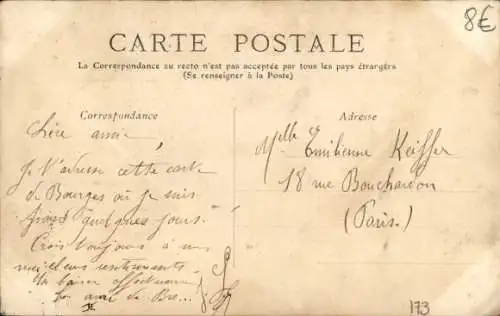 8€
CARTE POSTALE
La Correspondance au recto n'est pas acceptée par tous les pays étrangers
(Se renseigner à la Poste)
Correspondance
Chère amie,
Je t'adresse cette carte
de Bourges où je suis
pour quelques jours.
Crois toujours à mes
meilleurs sentiments
Un baiser affectueux
ton amie de
Adresse
Melle Emilienne Keiffer
18 rue Bouchardon
(Paris.)
173